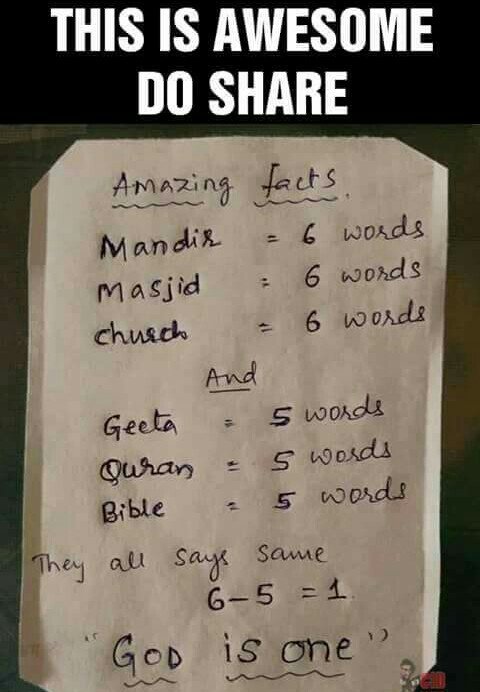 THIS IS AWESOME
DO SHARE
Amazing facts.
Mandir = 6 words
Masjid = 6 words
church = 6 words
And
Geeta = 5 words
Quran = 5 words
Bible = 5 words
They all says same
6-5 = 1
"GOD is one"